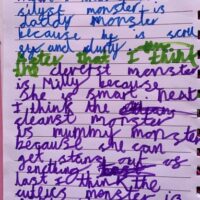 silyest monster is
daddy monster
because he is scroll
eys and durty.
After that I think
the cleverst monster
is Milly because
She smart neat
I think the
cleanst monster
is mummy monster
because she can
get stans out as
last I think the
cutics monster is